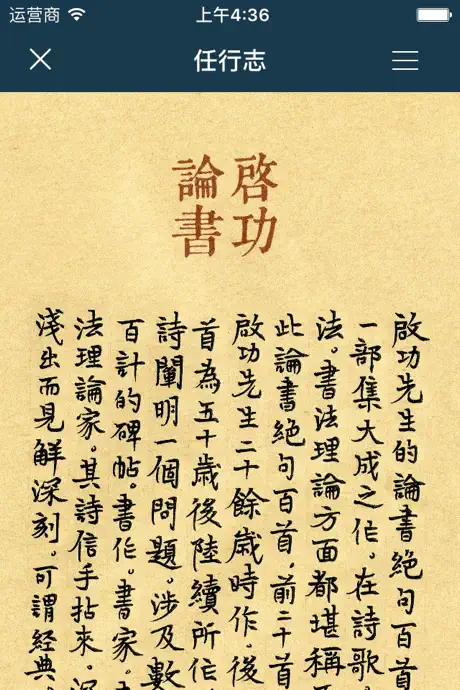 运营商 上午4:36
任行志
啓功
論書
啟功先生的論書絕句百首
一部集大成之作。在詩歌
法。書法理論方面都堪稱
此論書絕句百首，前二十首
啟功先生二十餘歲時作。後
首為五十歲後陸續所作
詩闡明一個問題。涉及數
百計的碑帖。書作。書家。
法理論家。其詩信手拈來。深
淺出而見解深刻。可謂經典